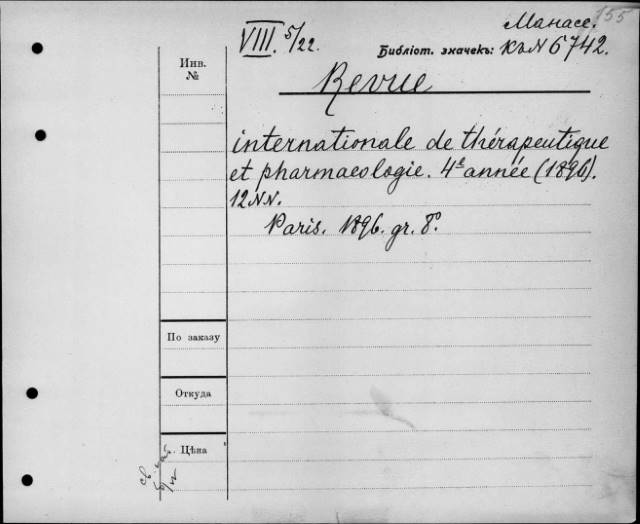 155
Манассе.
VIII. 5/22.
Библіот. значекъ: КъN 6742.
Инв.
№
Revue
internationale de thérapeutique
et pharmacologie. 4e année (1896).
12 NN.
Paris. 1896. gr. 8º.
По заказу
Откуда
Цѣна